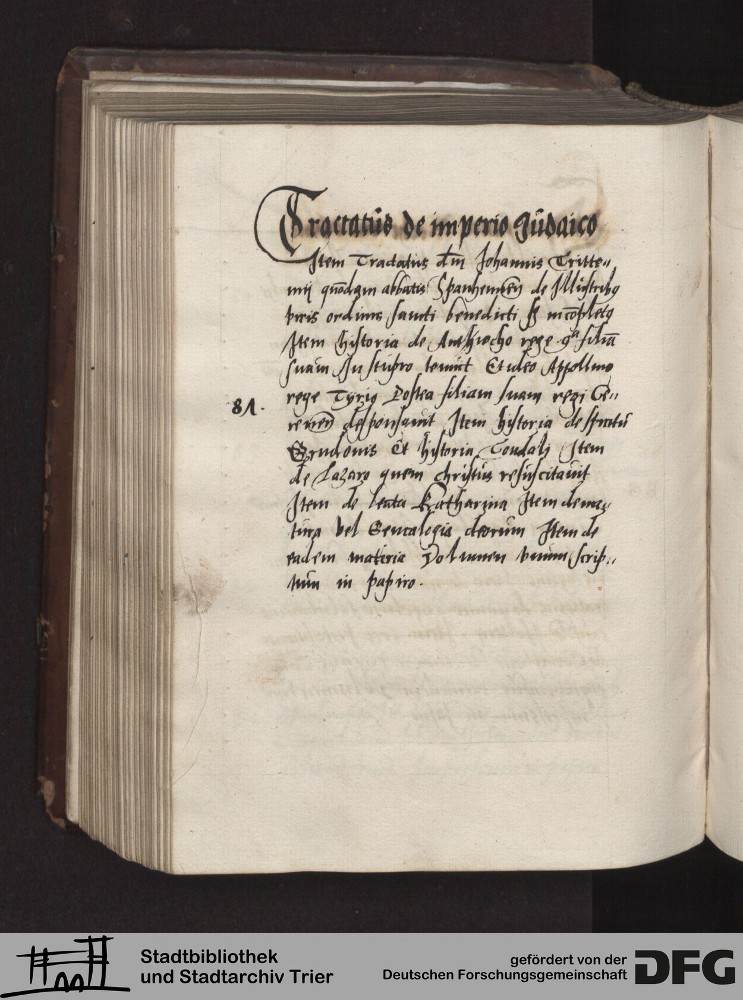 Tractatus de imperio Judaico
Item Tractatus dm̄ Johannis Tritte„
mij quōdam abbatis Spanhemēn̄ de Illustribꝰ
viris ordinis sancti benedicti sꝫ incōpletꝰ
Item historia de Anthiocho rege qͥ filiā
suam stupro tenuit Et ideo Appollino
rege Tyrio Postea filiam suam regi Ce„
renēn̄ desponsauit Item historia de spiritu
81.
Grudonis Et historia Tondalj Item
de Lazaro quem christus resuscitauit
Item de beata Katharina Item de na„
tura vel Genealogia deorum Item de
eadem materia Volumen vnum scrip„
tum in papiro.
Stadtbibliothek
und Stadtarchiv Trier
gefördert von der
Deutschen Forschungsgemeinschaft
DFG